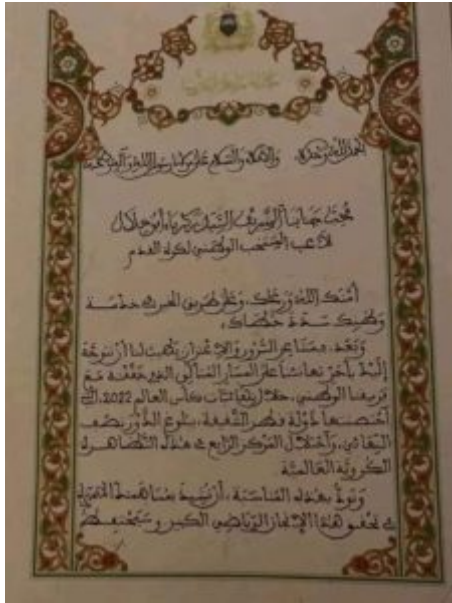 الحمد لله وحده والصلاة والسلام على مولانا رسول الله وآله وصحبه
محب جنابنا الشريف السيد زكرياء أبو خلال
لاعب المنتخب الوطني لكرة القدم
أمنك الله ورعاك، وعلى طريق الخير خدمة
وطنك سدد خطاك،
وبعد، فمن دواعي السرور والاعتزاز يطيب لنا أن نتوجه
إليك بأحر تهانئنا على المسار المتألق الذي حققته مع
فريقنا الوطني، خلال نهائيات كأس العالم 2022، التي
احتضنتها دولة قطر الشقيقة، ببلوغ الدور نصف
النهائي، واحتلال المركز الرابع في هذه التظاهرة
الكروية العالمية.
ونود بهذه المناسبة، أن نشيد بمساهمتك المتميزة
في تحقيق هذا الإنجاز الرياضي الكبير و